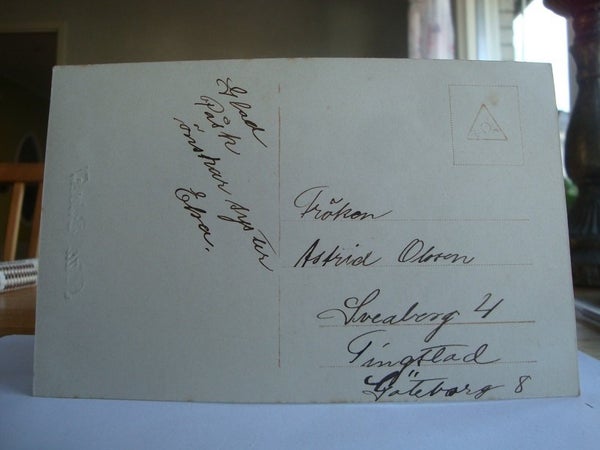 Glad
Påsk
önskar syster
Elsa.
Fröken
Astrid Olsson
Sveaberg 4
Tingstad
Göteborg 8